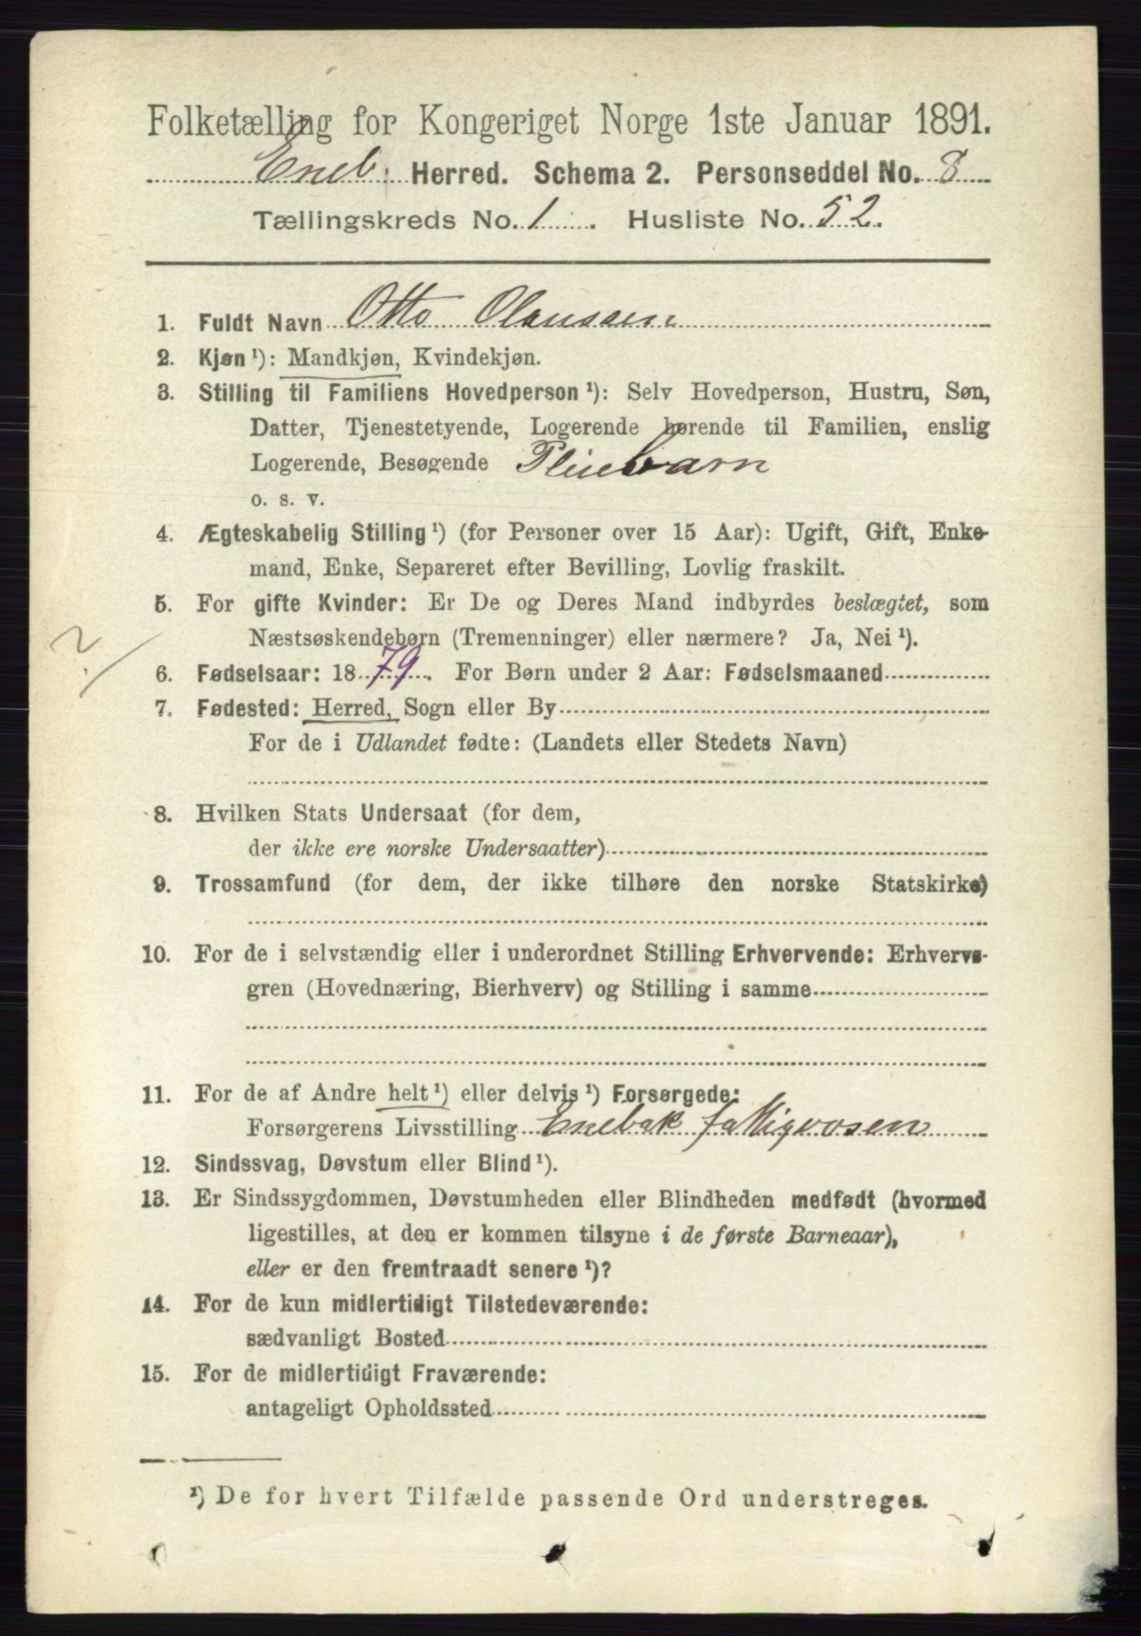 Folketælling for Kongeriget Norge 1ste Januar 1891.
Eneb. Herred. Schema 2. Personseddel No. 8
Tællingskreds No. 1. Husliste No. 52.
1. Fuldt Navn Otto Olaussen
2. Kjøn ¹): Mandkjøn, Kvindekjøn.
3. Stilling til Familiens Hovedperson ¹): Selv Hovedperson, Hustru, Søn,
Datter, Tjenestetyende, Logerende hørende til Familien, enslig
Logerende, Besøgende Pleiebarn
o. s. v.
4. Ægteskabelig Stilling ¹) (for Personer over 15 Aar): Ugift, Gift, Enke-
mand, Enke, Separeret efter Bevilling, Lovlig fraskilt.
5. For gifte Kvinder: Er De og Deres Mand indbyrdes beslægtet, som
Næstsøskendebørn (Tremenninger) eller nærmere? Ja, Nei ¹).
?/
6. Fødselsaar: 1879. For Børn under 2 Aar: Fødselsmaaned
7. Fødested: Herred, Sogn eller By
For de i Udlandet fødte: (Landets eller Stedets Navn)
8. Hvilken Stats Undersaat (for dem,
der ikke ere norske Undersaatter)
9. Trossamfund (for dem, der ikke tilhøre den norske Statskirke)
10. For de i selvstændig eller i underordnet Stilling Erhvervende: Erhvervs-
gren (Hovednæring, Bierhverv) og Stilling i samme
11. For de af Andre helt ¹) eller delvis ¹) Forsørgede:
Forsørgerens Livsstilling Enebak fattigvæsen
12. Sindssvag, Døvstum eller Blind ¹).
13. Er Sindssygdommen, Døvstumheden eller Blindheden medfødt (hvormed
ligestilles, at den er kommen tilsyne i de første Barneaar),
eller er den fremtraadt senere ¹)?
14. For de kun midlertidigt Tilstedeværende:
sædvanligt Bosted
15. For de midlertidigt Fraværende:
antageligt Opholdssted
¹) De for hvert Tilfælde passende Ord understreges.